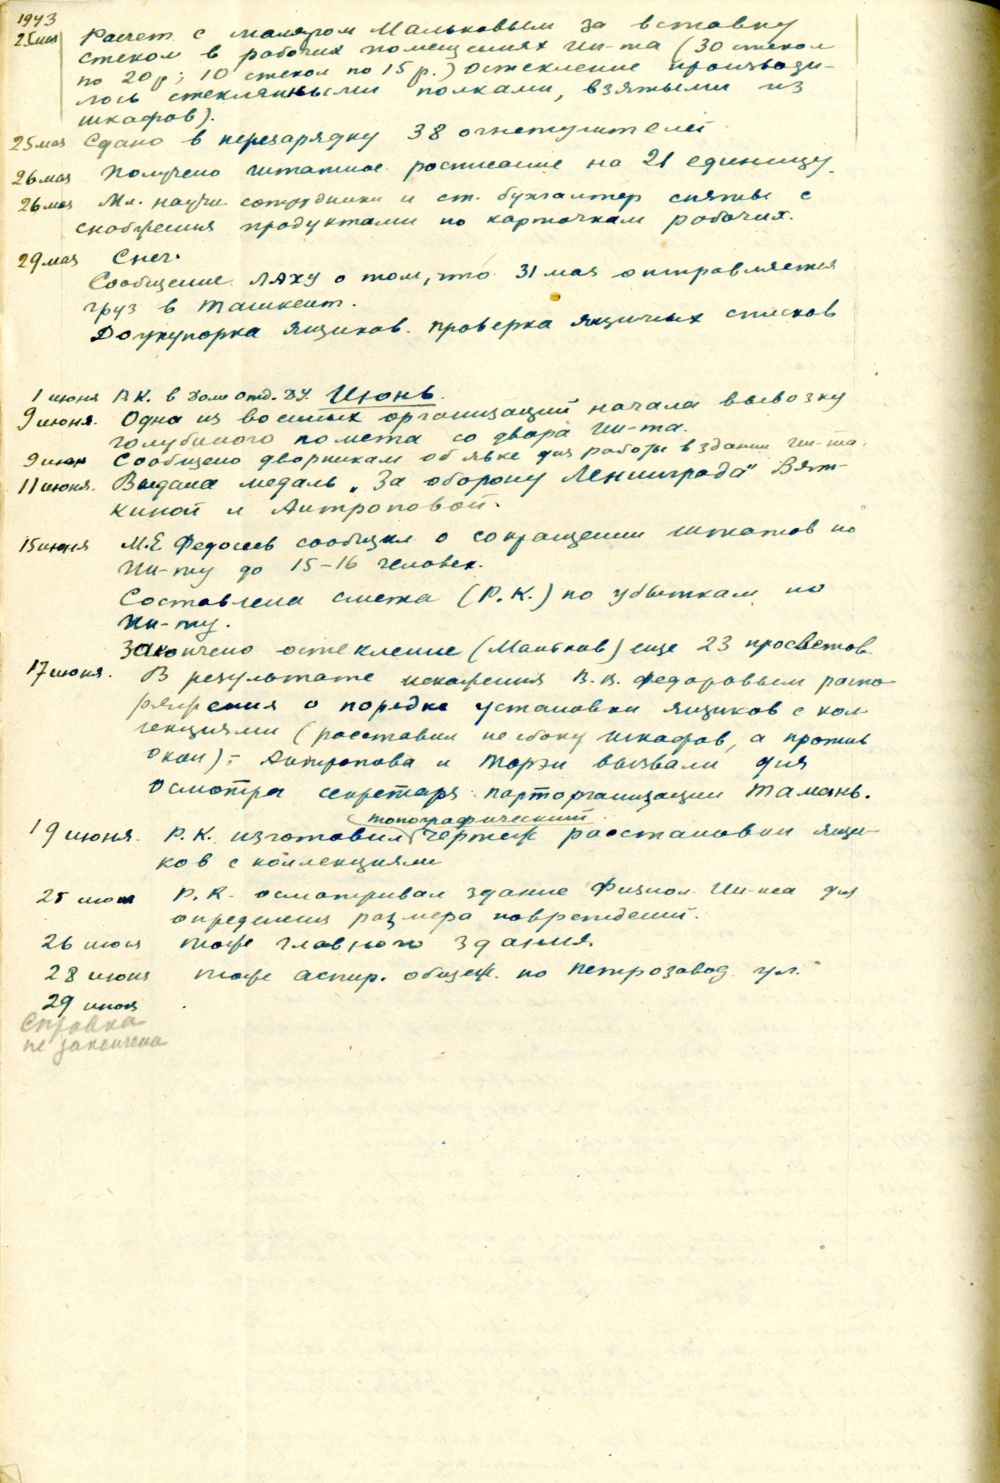 1943
25 мая Расчет с маляром Мальковым за вставку
стекол в рабочих помещениях Ин-та (30 стекол
по 20 р; 10 стекол по 15 р.) Остекление производи-
лось стеклянными полками, взятыми из
шкафов).
25 мая Сдано в перезарядку 38 огнетушителей
26 мая Получено штатное росписание на 21 единицу.
26 мая Мл. научн сотрудники и ст. бухгалтер сняты с
снабжения продуктами по карточкам рабочих.
29 мая Снег.
Сообщение ЛАХУ о том, что 31 мая отправляется
груз в Ташкент.
Доукупорка ящиков. проверка ящичных списков
Июнь
1 июня Р.К. в
9 июня. Одна из военных организаций начала вывозку
голубиного помета со двора Ин-та.
9 июня Сообщено дворникам об явке для работы в здании Ин-та.
11 июня. Выдана медаль „За оборону Ленинграда" Вят-
киной и Антроповой.
15 июня М.Е Федосеев сообщил о сокращении штатов по
Ин-ту до 15-16 человек.
Составлена смета (Р.К.) по убыткам по
Ин-ту.
Закончено остекление (Мальков) еще 23 просветов
17 июня. В результате искажения В.В. Федоровым распо-
ряжения о порядке установки ящиков с кол-
лекциями (расставил не сбоку шкафов, а против
окон) - Антропова и Торэн вызвали для
осмотра секретаря парторганизации Тамань.
топографический
19 июня. Р.К. изготовил чертеж расстановки ящи-
ков с коллекциями
25 июня Р.К. осматривал здание Физиол. Ин-та для
определения размера повреждений.
26 июня тоже главного здания.
28 июня тоже аспир. общеж. по Петрозавод. ул.
29 июня
Справка
не закончена